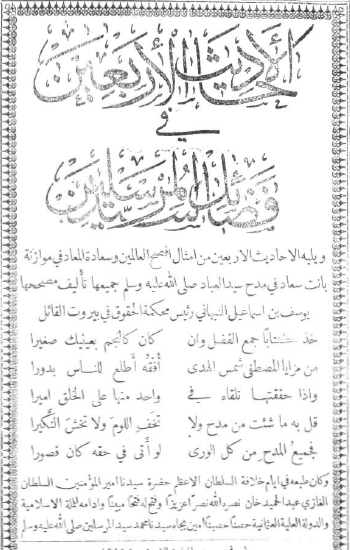 الأحاديث الأربعين
في
فضائل سيد المرسلين
ويليه الاحاديث الاربعين من امثال افصح العالمين وسعادة المعاد في موازنة
بانت سعاد في مدح سيد العباد صلى الله عليه وسلم جميعها تأليف مصححها
يوسف بن اسماعيل النبهاني رئيس محكمة الحقوق في بيروت القائل
خذ كتابا جمع الفضل وان كان كالنجم بعينيك صغيرا
من مزايا المصطفى شمس الهدى أفقه أطلع للناس بدورا
واذا حققتها تلقاه في واحد منها على الخلق اميرا
قل به ما شئت من مدح ولا تخف اللوم ولا تخش النكيرا
فجميع المدح من كل الورى لو أتى في حقه كان قصورا
وكان طبعه في ايام خلافة السلطان الاعظم حضرة سيدنا امير المؤمنين السلطان
الغازي عبد الحميد خان نصره الله نصرا عزيزا وفتح له فتحا مبينا وادامه لملة الاسلامية
والدولة العلية العثمانية حصنا حصينا آمين بجاه سيدنا محمد سيد المرسلين صلى الله عليه وسلم